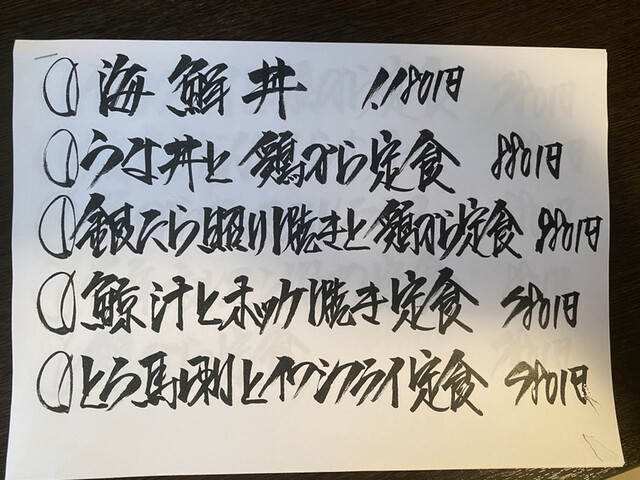 ○海鮮丼 1,180円
○うな丼と鶏から定食 880円
○銀たら照り焼きと鶏から定食 980円
○鯨汁とホッケ焼き定食 980円
○とろ馬刺とイワシフライ定食 980円